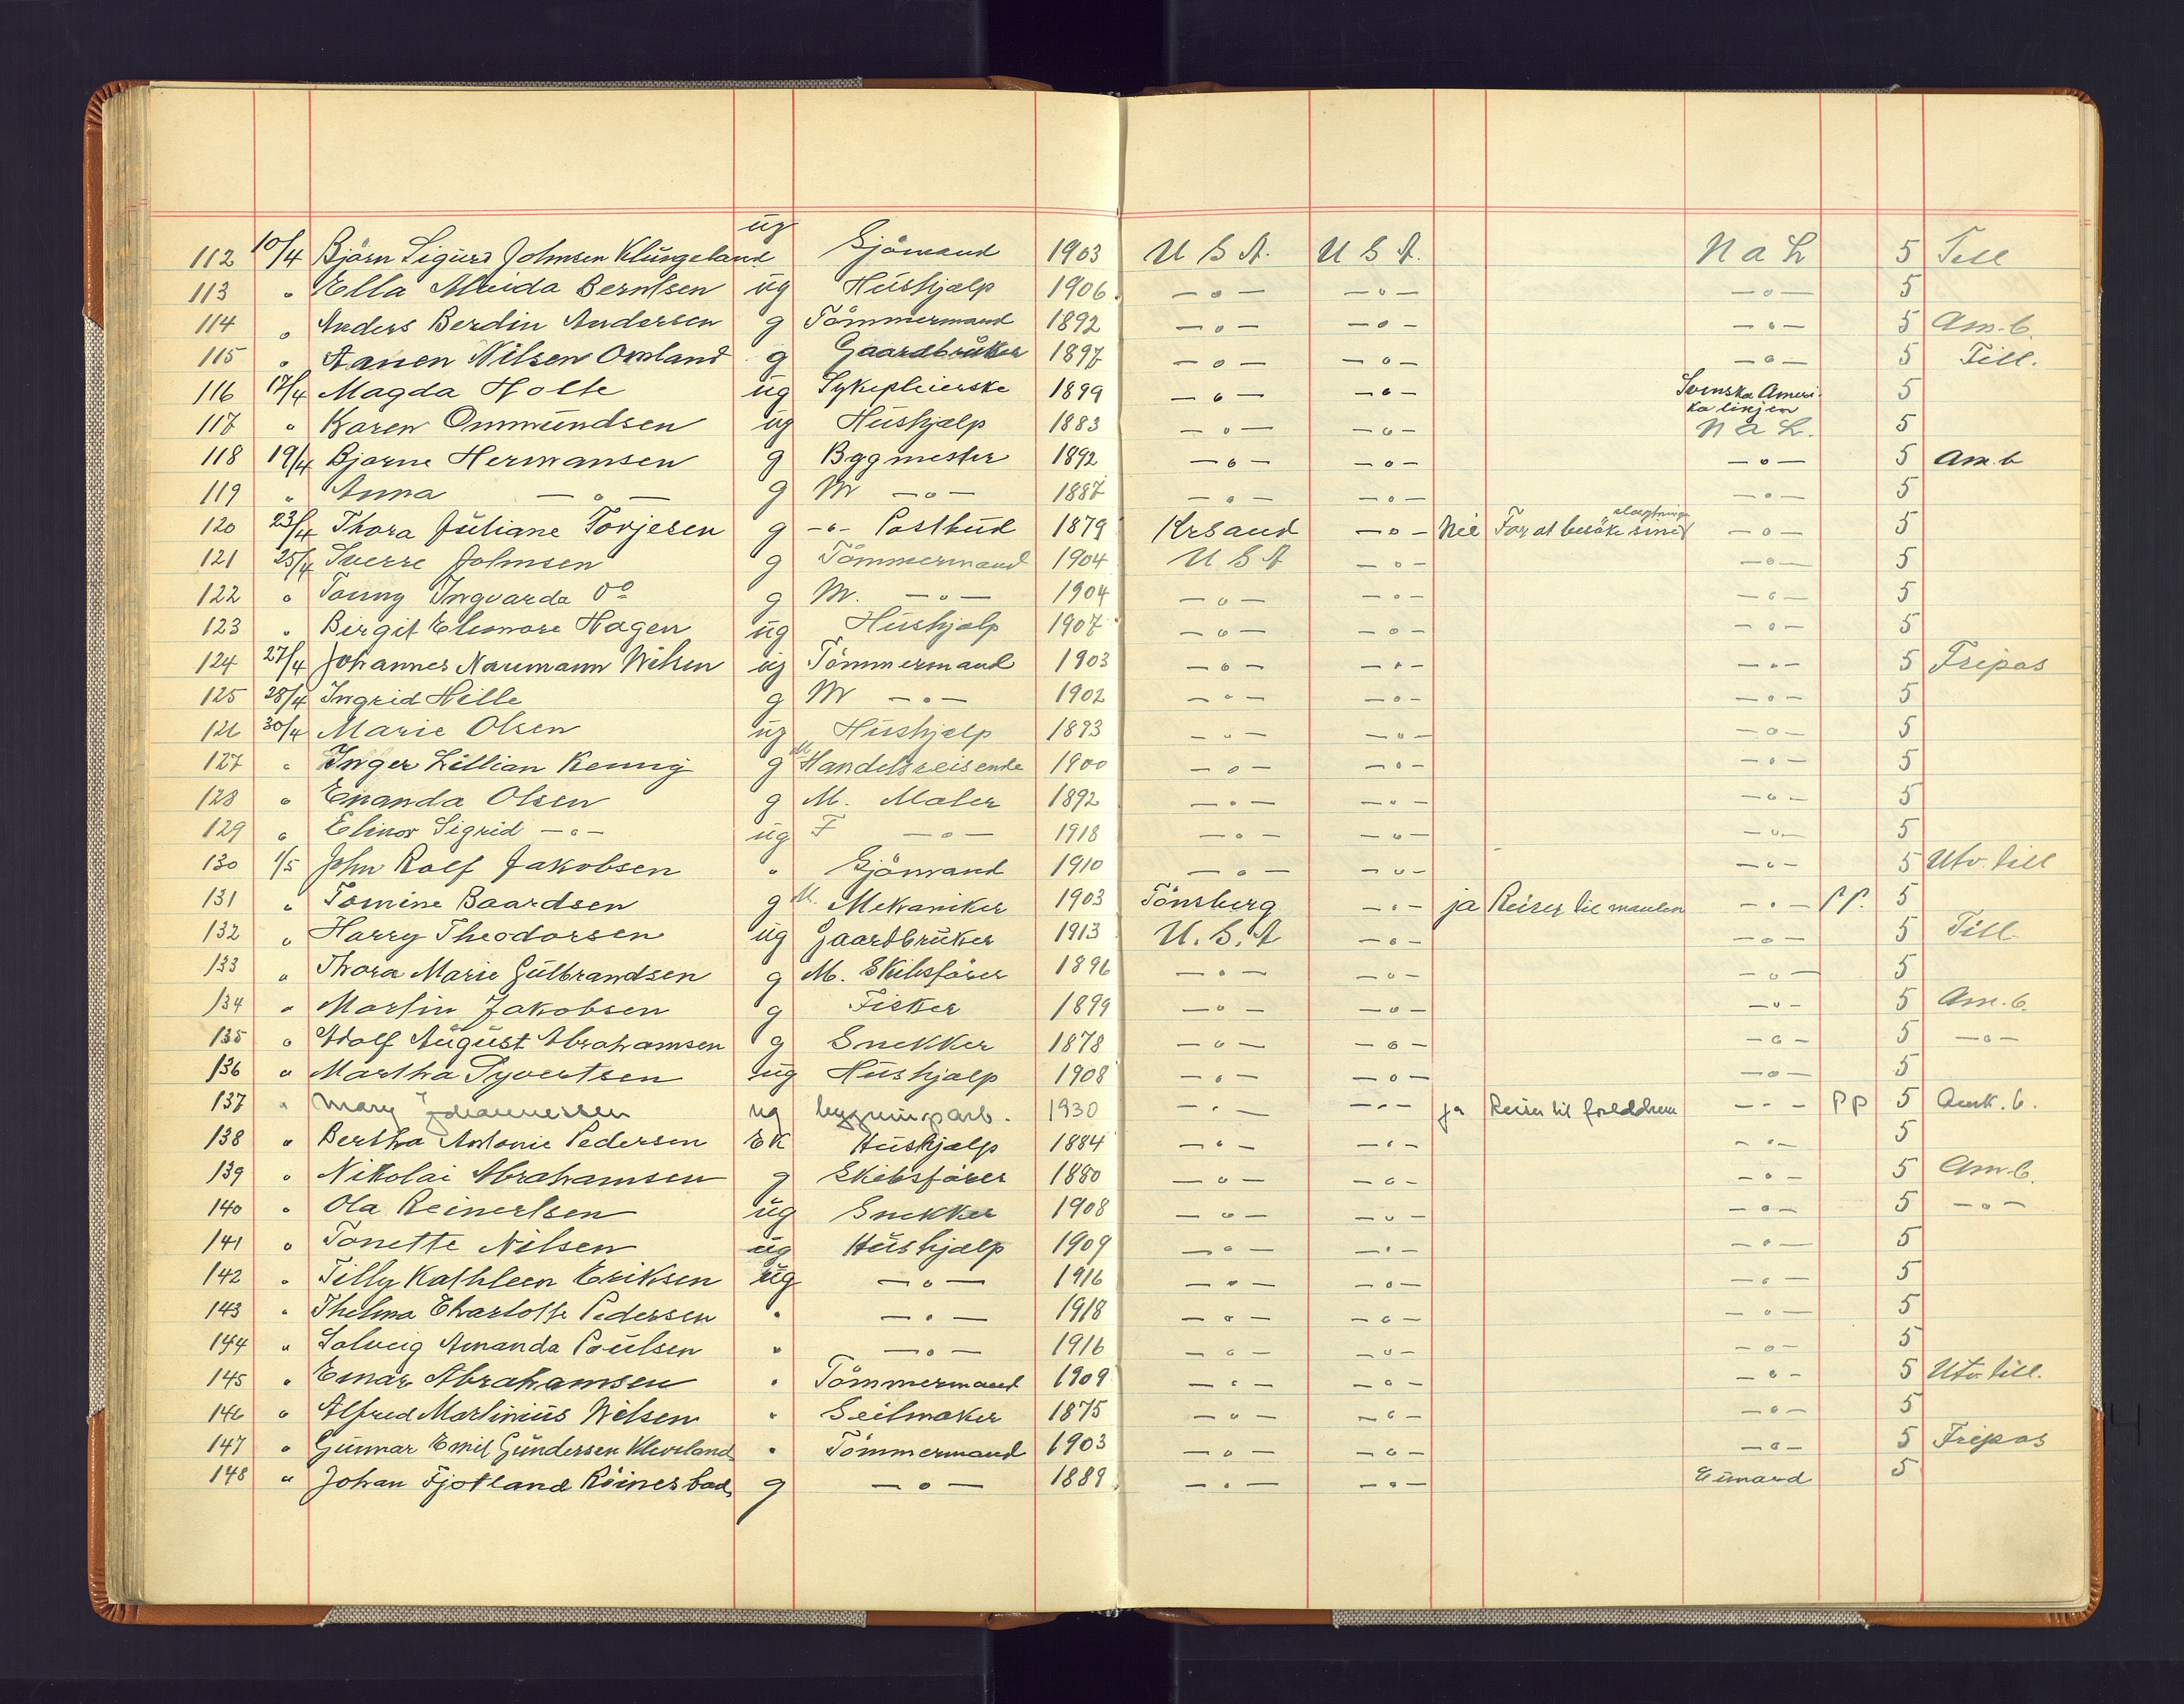 112 10/4 Björn Sigurd Johnsen Klungeland ug Sjömand 1903 U S A. U S A. N a L 5 Till
113 " Ella Alvida Berntsen ug Hushjælp 1906 —o— —o— —o— 5
114 " Anders Berdin Andersen g Tömmermand 1892 —o— —o— —o— 5 Am. b.
115 " Aanen Nilsen Omland g Gaardbruker 1897 —o— —o— —o— 5 Till.
116 17/4 Magda Holte ug Sykepleierske 1899 —o— —o— Svenska Ameri-
ka linjen 5
117 " Karen Ommundsen ug Hushjælp 1883 —o— —o— N a L. 5
118 19/4 Bjarne Hermansen g Bygmester 1892 —o— —o— —o— 5 Am. b
119 " Anna —o— g M —o— 1887 —o— —o— —o— 5
120 23/4 Thora Juliane Torjesen g -"- Postbud 1879 Krsand —o— Nei For at besöke sine —o— 5
121 25/4 Sverre Johnsen g Tömmermand 1904 U S A —o— —o— 5
122 " Tonny Ingvarda Do g M. —o— 1904 —o— —o— —o— 5
123 " Birgit Eleonore Hagen ug Hushjælp 1907 —o— —o— —o— 5
124 27/4 Johannes Naumann Nilsen ug Tömmermand 1903 —o— —o— —o— 5 Fripas
125 28/4 Ingrid Hille g M —o— 1902 —o— —o— —o— 5
126 30/4 Marie Olsen ug Hushjelp 1893 —o— —o— —o— 5
127 " Inger Lillian Kenny g M Handelsreisende 1900 —o— —o— —o— 5
128 " Enanda Olsen g M. Maler 1892 —o— —o— —o— 5
129 " Elinor Sigrid —o— ug F —o— 1918 —o— —o— —o— 5
130 1/5 John Rolf Jakobsen " Sjömand 1910 —o— —o— —o— 5 Utv. till
131 " Tomine Baardsen g M. Mekaniker 1903 Tönsberg —o— ja Reiser til manden —o— PP. 5
132 " Harry Theodorsen ug Gaardbruker 1913 U. S. A —o— —o— 5 Till
133 " Thora Marie Gulbrandsen g M. Skibsförer 1896 —o— —o— —o— 5
134 " Martin Jakobsen g Fisker 1899 —o— —o— —o— 5 Am. b.
135 " Adolf August Abrahamsen g Snekker 1878 —o— —o— —o— 5 —o—
136 " Martha Syvertsen ug Hushjælp 1908 —o— —o— —o— 5
137 " Mary Johannessen ug bygningsarb. 1930 —o— —o— ja Reiser til foreldrene —o— PP 5 Amk. b.
138 " Bertha Antonie Pedersen EK Hushjælp 1884 —o— —o— —o— 5
139 " Nikolai Abrahamsen g Skibsförer 1880 —o— —o— —o— 5 Am. b.
140 " Ola Reinertsen ug Snekker 1908 —o— —o— —o— 5 —o—
141 " Tonette Nilsen ug Hushjælp 1909 —o— —o— —o— 5
142 " Tilly Kathleen Eriksen ug —o— 1916 —o— —o— —o— 5
143 " Thelma Charlotte Pedersen " —o— 1918 —o— —o— —o— 5
144 " Solveig Amanda Poulsen " —o— 1916 —o— —o— —o— 5
145 " Einar Abrahamsen " Tömmermand 1909 —o— —o— —o— 5 Utv. till.
146 " Alfred Martinius Nilsen " Seilmaker 1875 —o— —o— —o— 5
147 " Gunnar Emil Gundersen Kleveland " Tömmermand 1903 —o— —o— —o— 5 Fripas
148 " Johan Fjotland Röinesdad g —o— 1889 —o— —o— Cunard 5